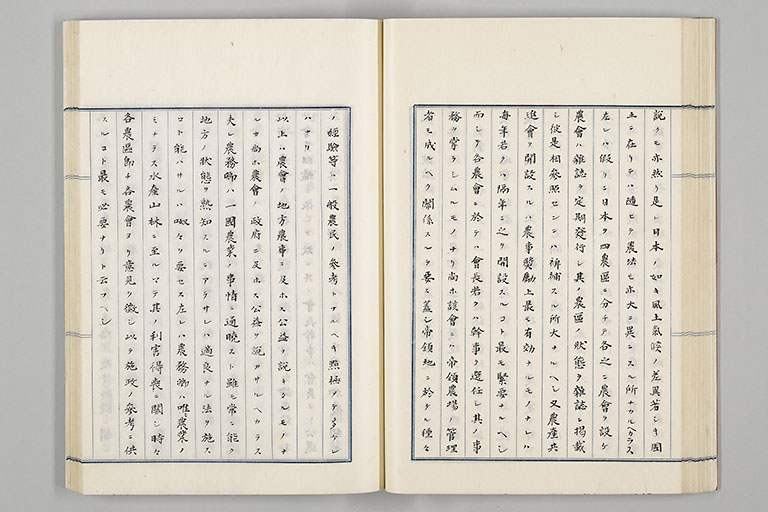 説クモ亦然リ是レ日本ノ如キ風土氣候ノ差異若シキ國
土ニ在リテハ随ヒテ農法モ亦大ニ異ニスル所ナカルヘカラス
左レハ假リニ日本ヲ四農區ニ分チテ各之ニ農會ヲ設ケ
農會ハ雜誌ヲ定期發行シ其ノ農區ノ狀態ヲ雜誌ニ掲載
シ彼是相參照センニハ裨補スル所大ナルヘシ又農産共
進會ヲ開設スルハ農事奬勵上最モ有効ナルモノナレハ
毎年若クハ隔年ニ之ヲ開設スルコト最モ緊要ナルヘシ
而シテ各農會ニ於ケハ會長若クハ幹事ヲ選任シ其ノ事
務ヲ掌ラシムルモノナリ尚ホ該會ニハ帝領農場ノ管理
者モ成ルヘク關係スルヲ要ス蓋シ帝領地ニ於ケル種々
ノ經驗等ハ一般農民ノ參考トナルヘキ點極メテ多ケレ
ハナリ
以上ハ農會ノ地方農事ニ及ホス公益ヲ説キタルモノナ
ルカ尚ホ農會ノ政府ニ及ホス公益ヲ説カサルヘカラス
夫レ農務卿ハ一國農業ノ事情ニ通曉スト雖モ常ニ能ク
地方ノ狀態ヲ熟知スルニアラサレハ適良ナル法ヲ施ス
コト能ハサルハ呶々ヲ要セス左レハ農務卿ハ唯ニ農業ノ
ミナラス水産山林ニ至ルマテ其ノ利害得喪ニ關シ時々
各農區即チ各農會ヨリ意見ヲ徴シ以テ施政ノ參考ニ供
スルコト最モ必要ナリト云フヘシ